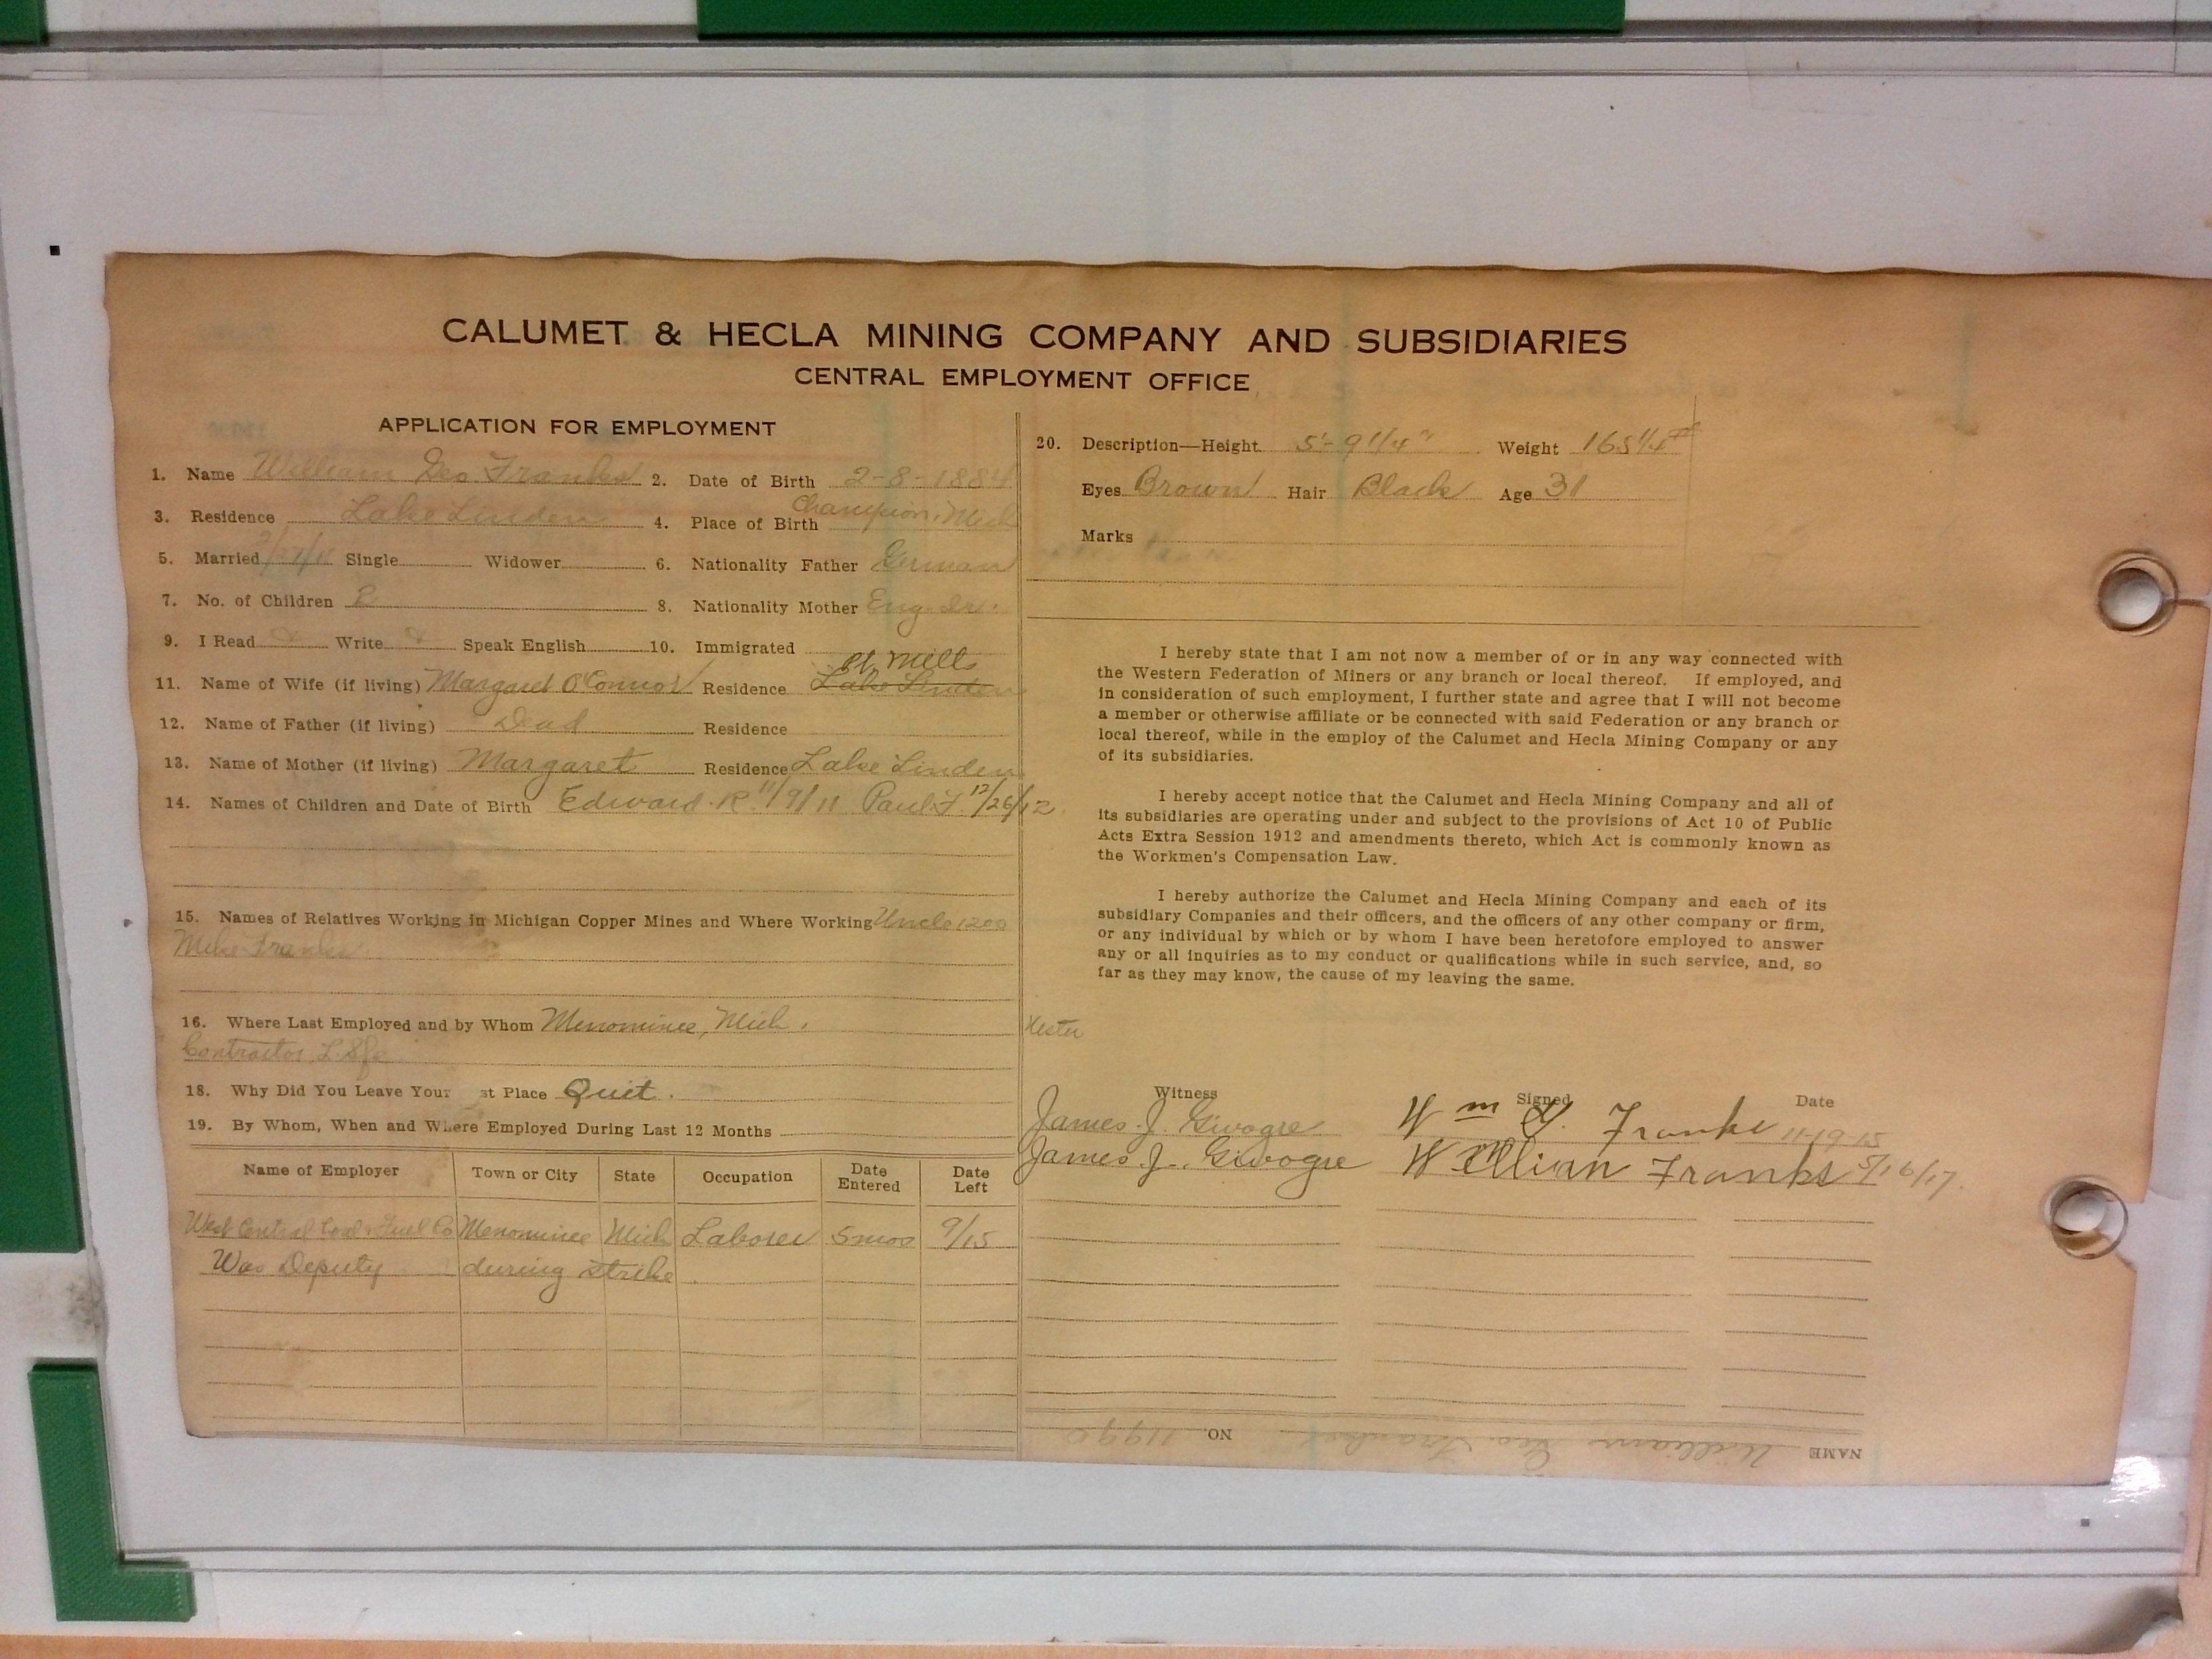 CALUMET & HECLA MINING COMPANY AND SUBSIDIARIES
CENTRAL EMPLOYMENT OFFICE
APPLICATION FOR EMPLOYMENT
1. Name William Geo Franks 2. Date of Birth 2-8-1884
3. Residence Lake Linden 4. Place of Birth Champion, Mich
5. Married /27/11 Single Widower 6. Nationality Father German
7. No. of Children 2 8. Nationality Mother Eng-Ir.
9. I Read Write Speak English 10. Immigrated
11. Name of Wife (if living) Margaret O'Connor Residence Lake Linden Mill
12. Name of Father (if living) Dead Residence
13. Name of Mother (if living) Margaret Residence Lake Linden
14. Names of Children and Date of Birth Edward R. 11/9/11 Paul F. 12/26/12
15. Names of Relatives Working in Michigan Copper Mines and Where Working Uncle 1200
Mike Franks
16. Where Last Employed and by Whom Menominee, Mich.
Contractor
18. Why Did You Leave Your st Place Quit.
19. By Whom, When and Where Employed During Last 12 Months
Name of Employer Town or City State Occupation Date Entered Date Left
West Central Coal & Fuel Co Menominee Mich Laborer 5 mos 9/15
Was Deputy during strike
20. Description—Height 5'-9 1/4" Weight 165 1/4 #
Eyes Brown Hair Black Age 31
Marks
I hereby state that I am not now a member of or in any way connected with
the Western Federation of Miners or any branch or local thereof. If employed, and
in consideration of such employment, I further state and agree that I will not become
a member or otherwise affiliate or be connected with said Federation or any branch or
local thereof, while in the employ of the Calumet and Hecla Mining Company or any
of its subsidiaries.
I hereby accept notice that the Calumet and Hecla Mining Company and all of
its subsidiaries are operating under and subject to the provisions of Act 10 of Public
Acts Extra Session 1912 and amendments thereto, which Act is commonly known as
the Workmen's Compensation Law.
I hereby authorize the Calumet and Hecla Mining Company and each of its
subsidiary Companies and their officers, and the officers of any other company or firm,
or any individual by which or by whom I have been heretofore employed to answer
any or all inquiries as to my conduct or qualifications while in such service, and, so
far as they may know, the cause of my leaving the same.
Witness Signed Date
James J. Givogre Wm G. Franks 11-19-15
James J. Givogre Willian Franks 5/16/17.
NAME William Geo Franks NO. 11990